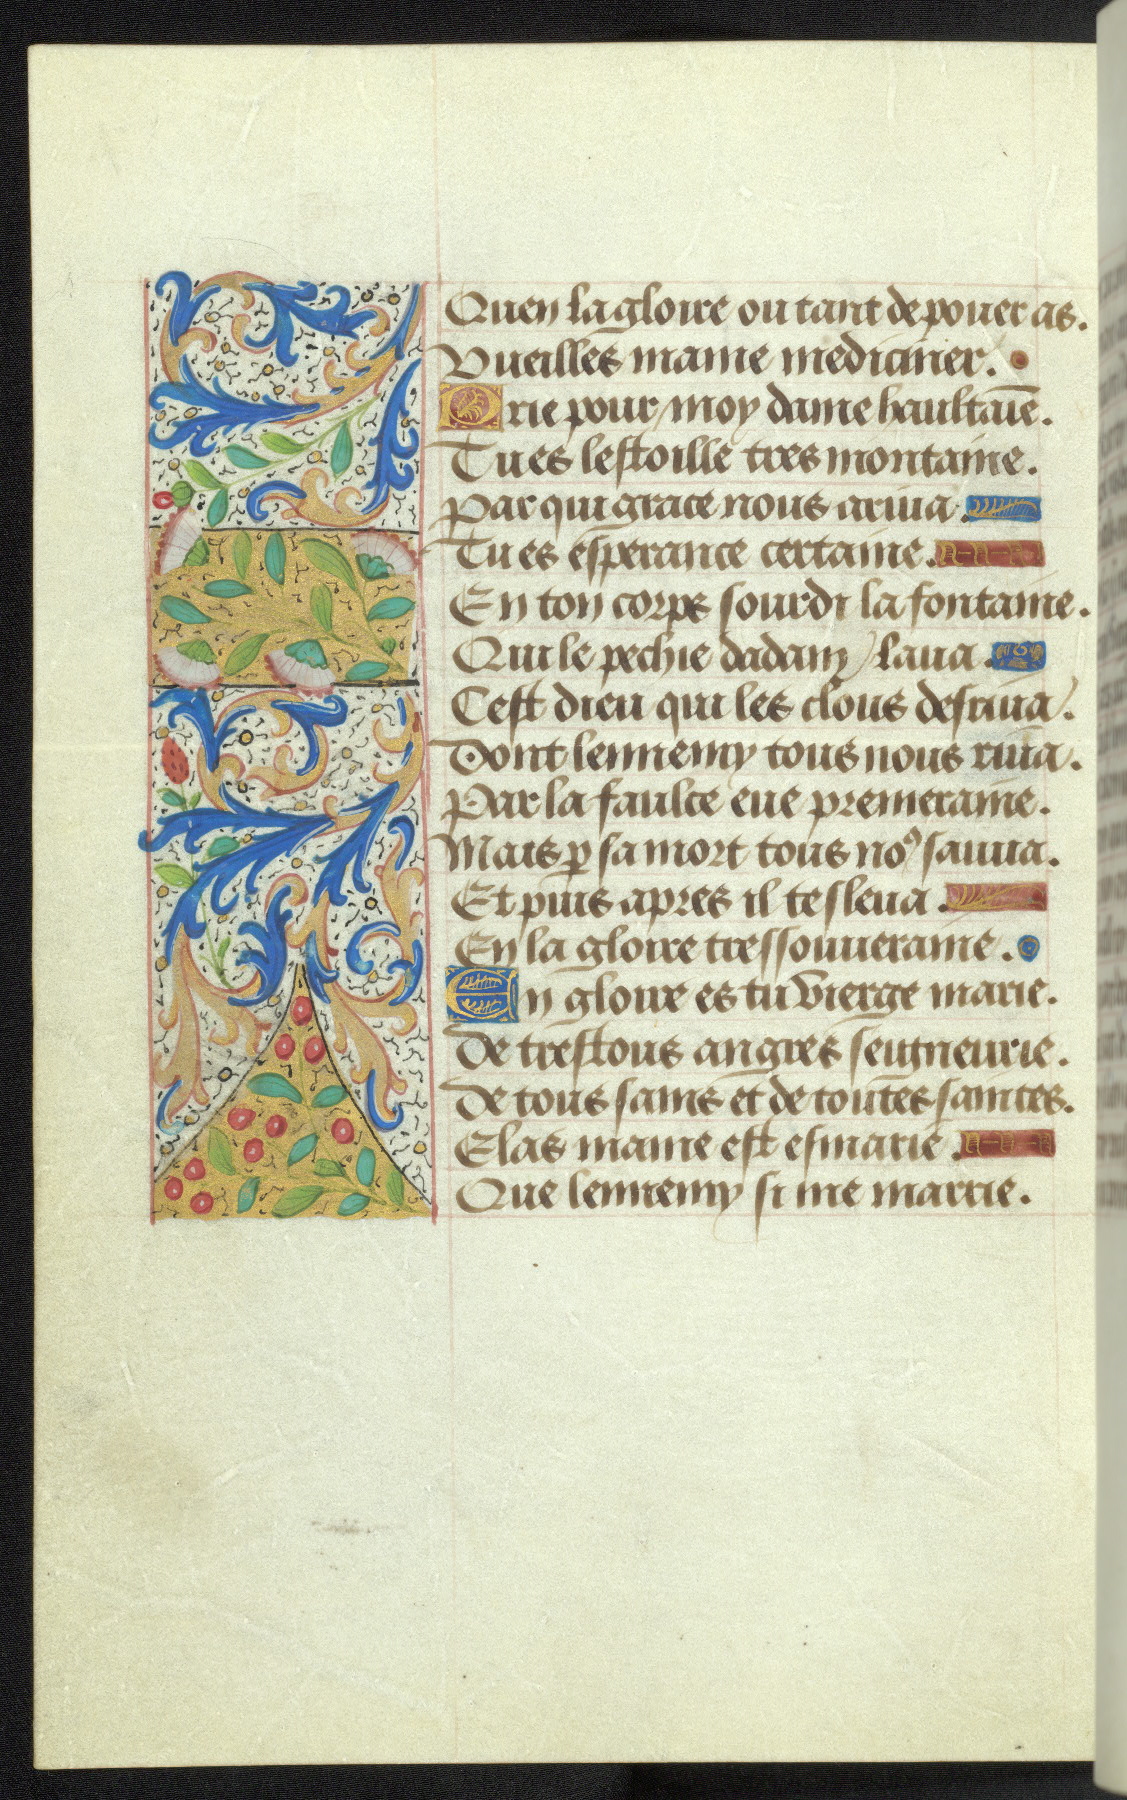 Quen la gloire ou tant de pouer as.
Vueilles mame mediciner.
Prie pour moy dame haultaīe.
Tu es lestoille tres montaine.
Par qui grace nous ariua.
Tu es esperance certaine.
En ton corps sourdi la fontaine.
Qui le pechie dadam laua.
Cest dieu qui les clous desriua.
Dont lennemy tous nous riua.
Par la faulce eue premeraine.
Mais ꝑ sa mort tous noꝰ sauua.
Et puis apres il tesleua.
En la gloire tressouueraine.
En gloire es tu vierge marie.
De trestous angres seigneurie.
De tous sains et de toutes saintes.
Elas mame est esmarie.
Que lennemy si me marrie.